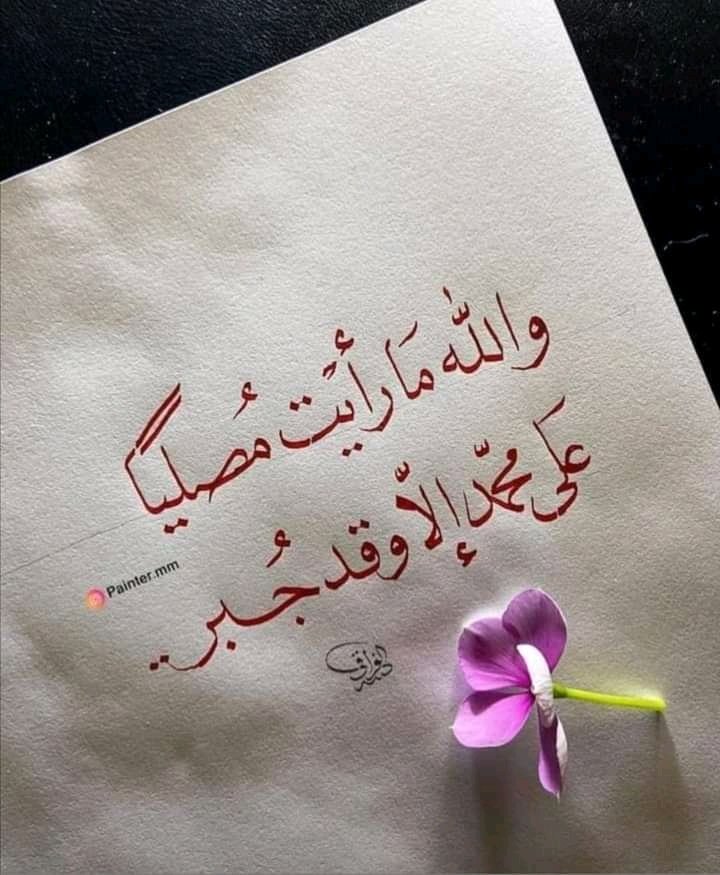 والله مَا رأَيْت مُصلياً
عَلى محمّد إلاّ وقد جُبر..
Painter.mm